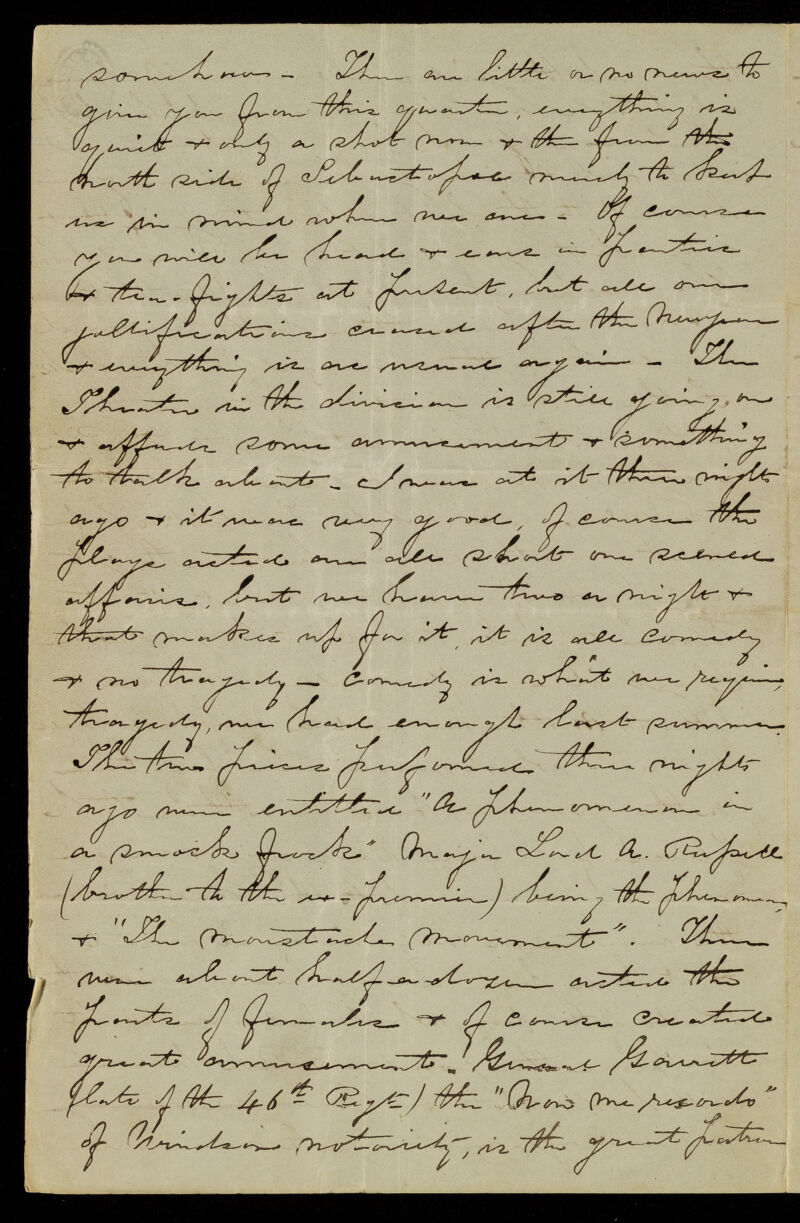 somehow - There are little or no news to
give you from this quarter, everything is
quiet & only a shot now & then from the
north side of Sebastopol merely to keep
us in mind where we are - Of course
you will be head & ears in parties
& tea-fights at present, but all our
jollifications ceased after the Newyear
& everything is as usual again - The
Theatre in the division is still going on
& affords some amusement & something
to talk about - I was at it three nights
ago & it was very good, of course the
plays acted are all short one scened
affairs, but we have two a night &
that makes up for it, it is all comedy
& no tragedy - Comedy is what we require,
tragedy, we had enough last summer.
The two pieces performed three nights
ago were entitled "A phenomenon in
a smock frock" Major Lord A. Russell
(brother to the ex-premier) being the phenomenon,
& "The moustache movement". There
were about half a dozen acted the
parts of females & of course created
great amusement. General Garrett
(late of the 46th Regt) the
of Windsor notoriety, is the great patron